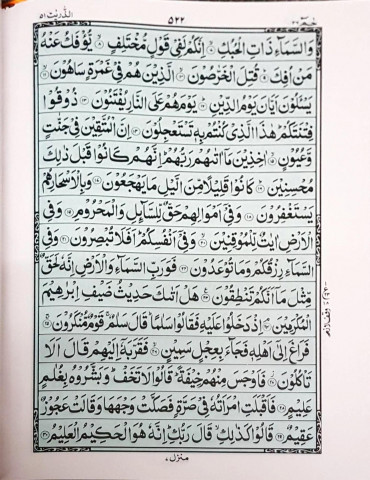 الذّٰريٰت ٥١
٥٢٢
حٰمٓ ٢٦
وَالسَّمَآءِ ذَاتِ الْحُبُكِ ۙ﴿۷﴾ اِنَّكُمْ لَفِیْ قَوْلٍ مُّخْتَلِفٍ ۙ﴿۸﴾ یُّؤْفَكُ عَنْهُ
مَنْ اُفِكَ ؕ﴿۹﴾ قُتِلَ الْخَرّٰصُوْنَ ۙ﴿۱۰﴾ الَّذِیْنَ هُمْ فِیْ غَمْرَةٍ سَاهُوْنَ ۙ﴿۱۱﴾
یَسْـَٔلُوْنَ اَیَّانَ یَوْمُ الدِّیْنِ ؕ﴿۱۲﴾ یَوْمَ هُمْ عَلَی النَّارِ یُفْتَنُوْنَ ﴿۱۳﴾ ذُوْقُوْا
فِتْنَتَكُمْ ؕ هٰذَا الَّذِیْ كُنْتُمْ بِهٖ تَسْتَعْجِلُوْنَ ﴿۱۴﴾ اِنَّ الْمُتَّقِیْنَ فِیْ جَنّٰتٍ
وَّعُیُوْنٍ ۙ﴿۱۵﴾ اٰخِذِیْنَ مَاۤ اٰتٰىهُمْ رَبُّهُمْ ؕ اِنَّهُمْ كَانُوْا قَبْلَ ذٰلِكَ
مُحْسِنِیْنَ ؕ﴿۱۶﴾ كَانُوْا قَلِیْلًا مِّنَ الَّیْلِ مَا یَهْجَعُوْنَ ﴿۱۷﴾ وَبِالْاَسْحَارِ هُمْ
یَسْتَغْفِرُوْنَ ﴿۱۸﴾ وَفِیْۤ اَمْوَالِهِمْ حَقٌّ لِّلسَّآىِٕلِ وَالْمَحْرُوْمِ ﴿۱۹﴾ وَفِی
الْاَرْضِ اٰیٰتٌ لِّلْمُوْقِنِیْنَ ۙ﴿۲۰﴾ وَفِیْۤ اَنْفُسِكُمْ ؕ اَفَلَا تُبْصِرُوْنَ ﴿۲۱﴾ وَفِی
السَّمَآءِ رِزْقُكُمْ وَمَا تُوْعَدُوْنَ ﴿۲۲﴾ فَوَرَبِّ السَّمَآءِ وَالْاَرْضِ اِنَّهٗ لَحَقٌّ
مِّثْلَ مَاۤ اَنَّكُمْ تَنْطِقُوْنَ ﴿۲۳﴾ هَلْ اَتٰىكَ حَدِیْثُ ضَیْفِ اِبْرٰهِیْمَ
الْمُكْرَمِیْنَ ﴿۲۴﴾ اِذْ دَخَلُوْا عَلَیْهِ فَقَالُوْا سَلٰمًا ؕ قَالَ سَلٰمٌ ۚ قَوْمٌ مُّنْكَرُوْنَ ﴿۲۵﴾
فَرَاغَ اِلٰۤی اَهْلِهٖ فَجَآءَ بِعِجْلٍ سَمِیْنٍ ﴿۲۶﴾ فَقَرَّبَهٗۤ اِلَیْهِمْ قَالَ اَلَا
تَاْكُلُوْنَ ﴿۲۷﴾ فَاَوْجَسَ مِنْهُمْ خِیْفَةً ؕ قَالُوْا لَا تَخَفْ ؕ وَبَشَّرُوْهُ بِغُلٰمٍ
عَلِیْمٍ ﴿۲۸﴾ فَاَقْبَلَتِ امْرَاَتُهٗ فِیْ صَرَّةٍ فَصَكَّتْ وَجْهَهَا وَقَالَتْ عَجُوْزٌ
عَقِیْمٌ ﴿۲۹﴾ قَالُوْا كَذٰلِكِ ۙ قَالَ رَبُّكِ ؕ اِنَّهٗ هُوَ الْحَكِیْمُ الْعَلِیْمُ ﴿۳۰﴾
منزل ٧